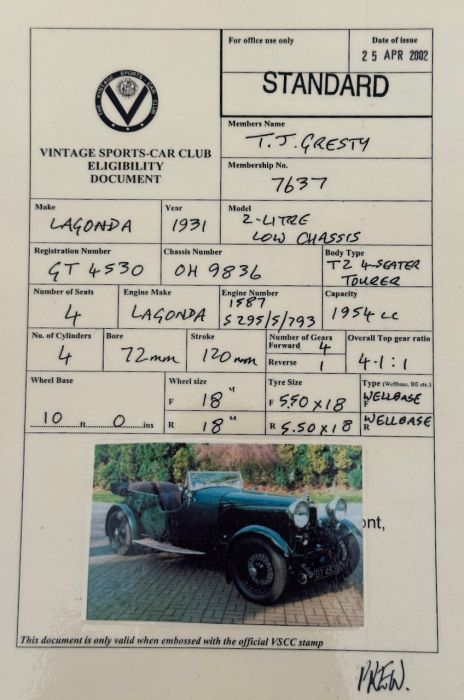 For office use only
Date of issue
25 APR 2002
STANDARD
THE VINTAGE SPORTS CAR CLUB
V
VINTAGE SPORTS-CAR CLUB
ELIGIBILITY
DOCUMENT
Members Name
T. J. GRESTY
Membership No.
7637
Make
LAGONDA
Year
1931
Model
2-LITRE
LOW CHASSIS
Registration Number
GT 4530
Chassis Number
OH 9836
Body Type
T2 4-SEATER
TOURER
Number of Seats
4
Engine Make
LAGONDA
Engine Number
1587
S 295/5/793
Capacity
1954 cc
No. of Cylinders
4
Bore
72mm
Stroke
120 mm
Number of Gears
Forward 4
Reverse 1
Overall Top gear ratio
4.1:1
Wheel Base
10 ft 0 ins
Wheel size
F 18"
R 18"
Tyre Size
F 5.50 x 18
R 5.50 x 18
Type (Wellbase, BE etc.)
F WELLBASE
R WELLBASE
ont,
This document is only valid when embossed with the official VSCC stamp